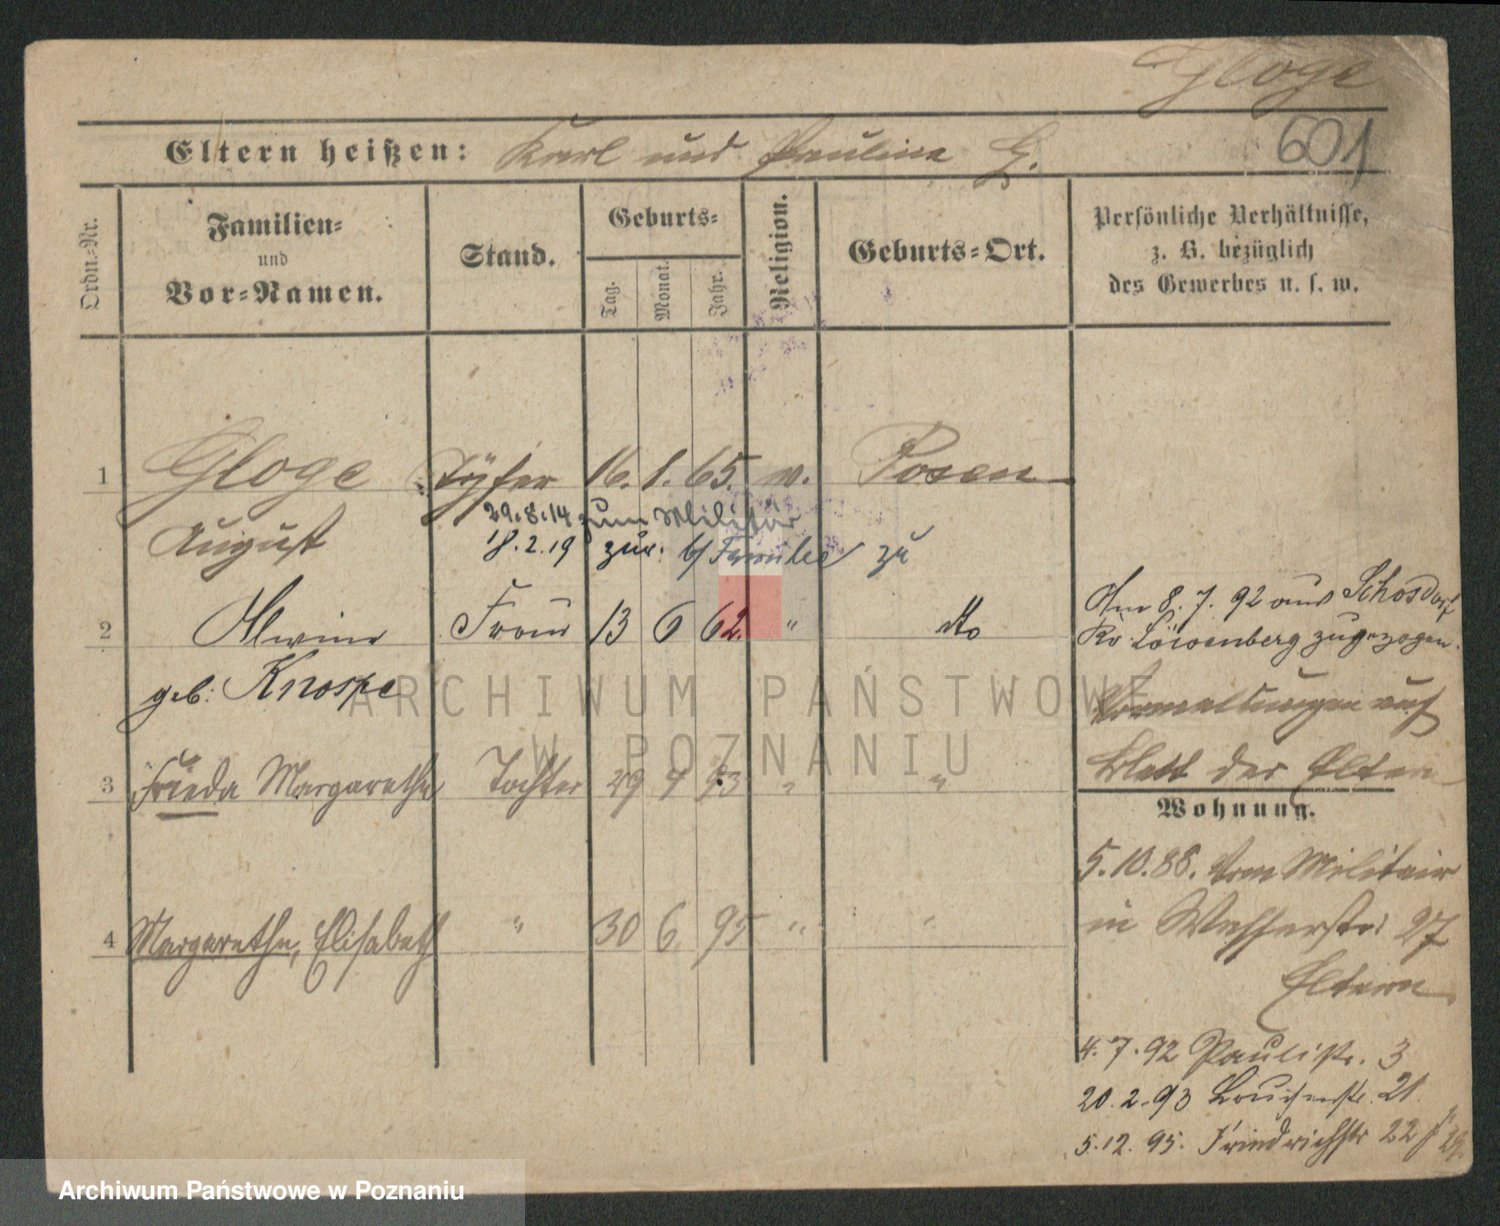 Gloge
601
Eltern heißen: Karl und Pauline G.
Ordn.-Nr.
Familien- und Vor-Namen.
Stand.
Geburts-
Tag.
Monat.
Jahr.
Religion.
Geburts-Ort.
Persönliche Verhältnisse,
z. B. bezüglich
des Gewerbes u. s. w.
1 Gloge Töpfer 16. 1. 65. Posen
29.8.14 zum Militär
August
18.2.19 zur. b/ Familie zu
2 Alwine Frau 13 6 62. " dto
geb: Knospe
3 Frieda Margarethe Tochter 29 7 93 " "
4 Margarethe, Elisabeth " 30 6. 95 " "
Am 8. 7. 92 aus Schosdorf
Kr. Löwenberg zugezogen.
Vormeldungen auf
Blatt der Eltern
Wohnung.
5.10.88. vom Militair
in 27
Eltern
4. 7. 92 Paulistr. 3
20. 2. 93 21.
5. 12. 95. Friedrichstr 22
ARCHIWUM PAŃSTWOWE
W POZNANIU
Archiwum Państwowe w Poznaniu